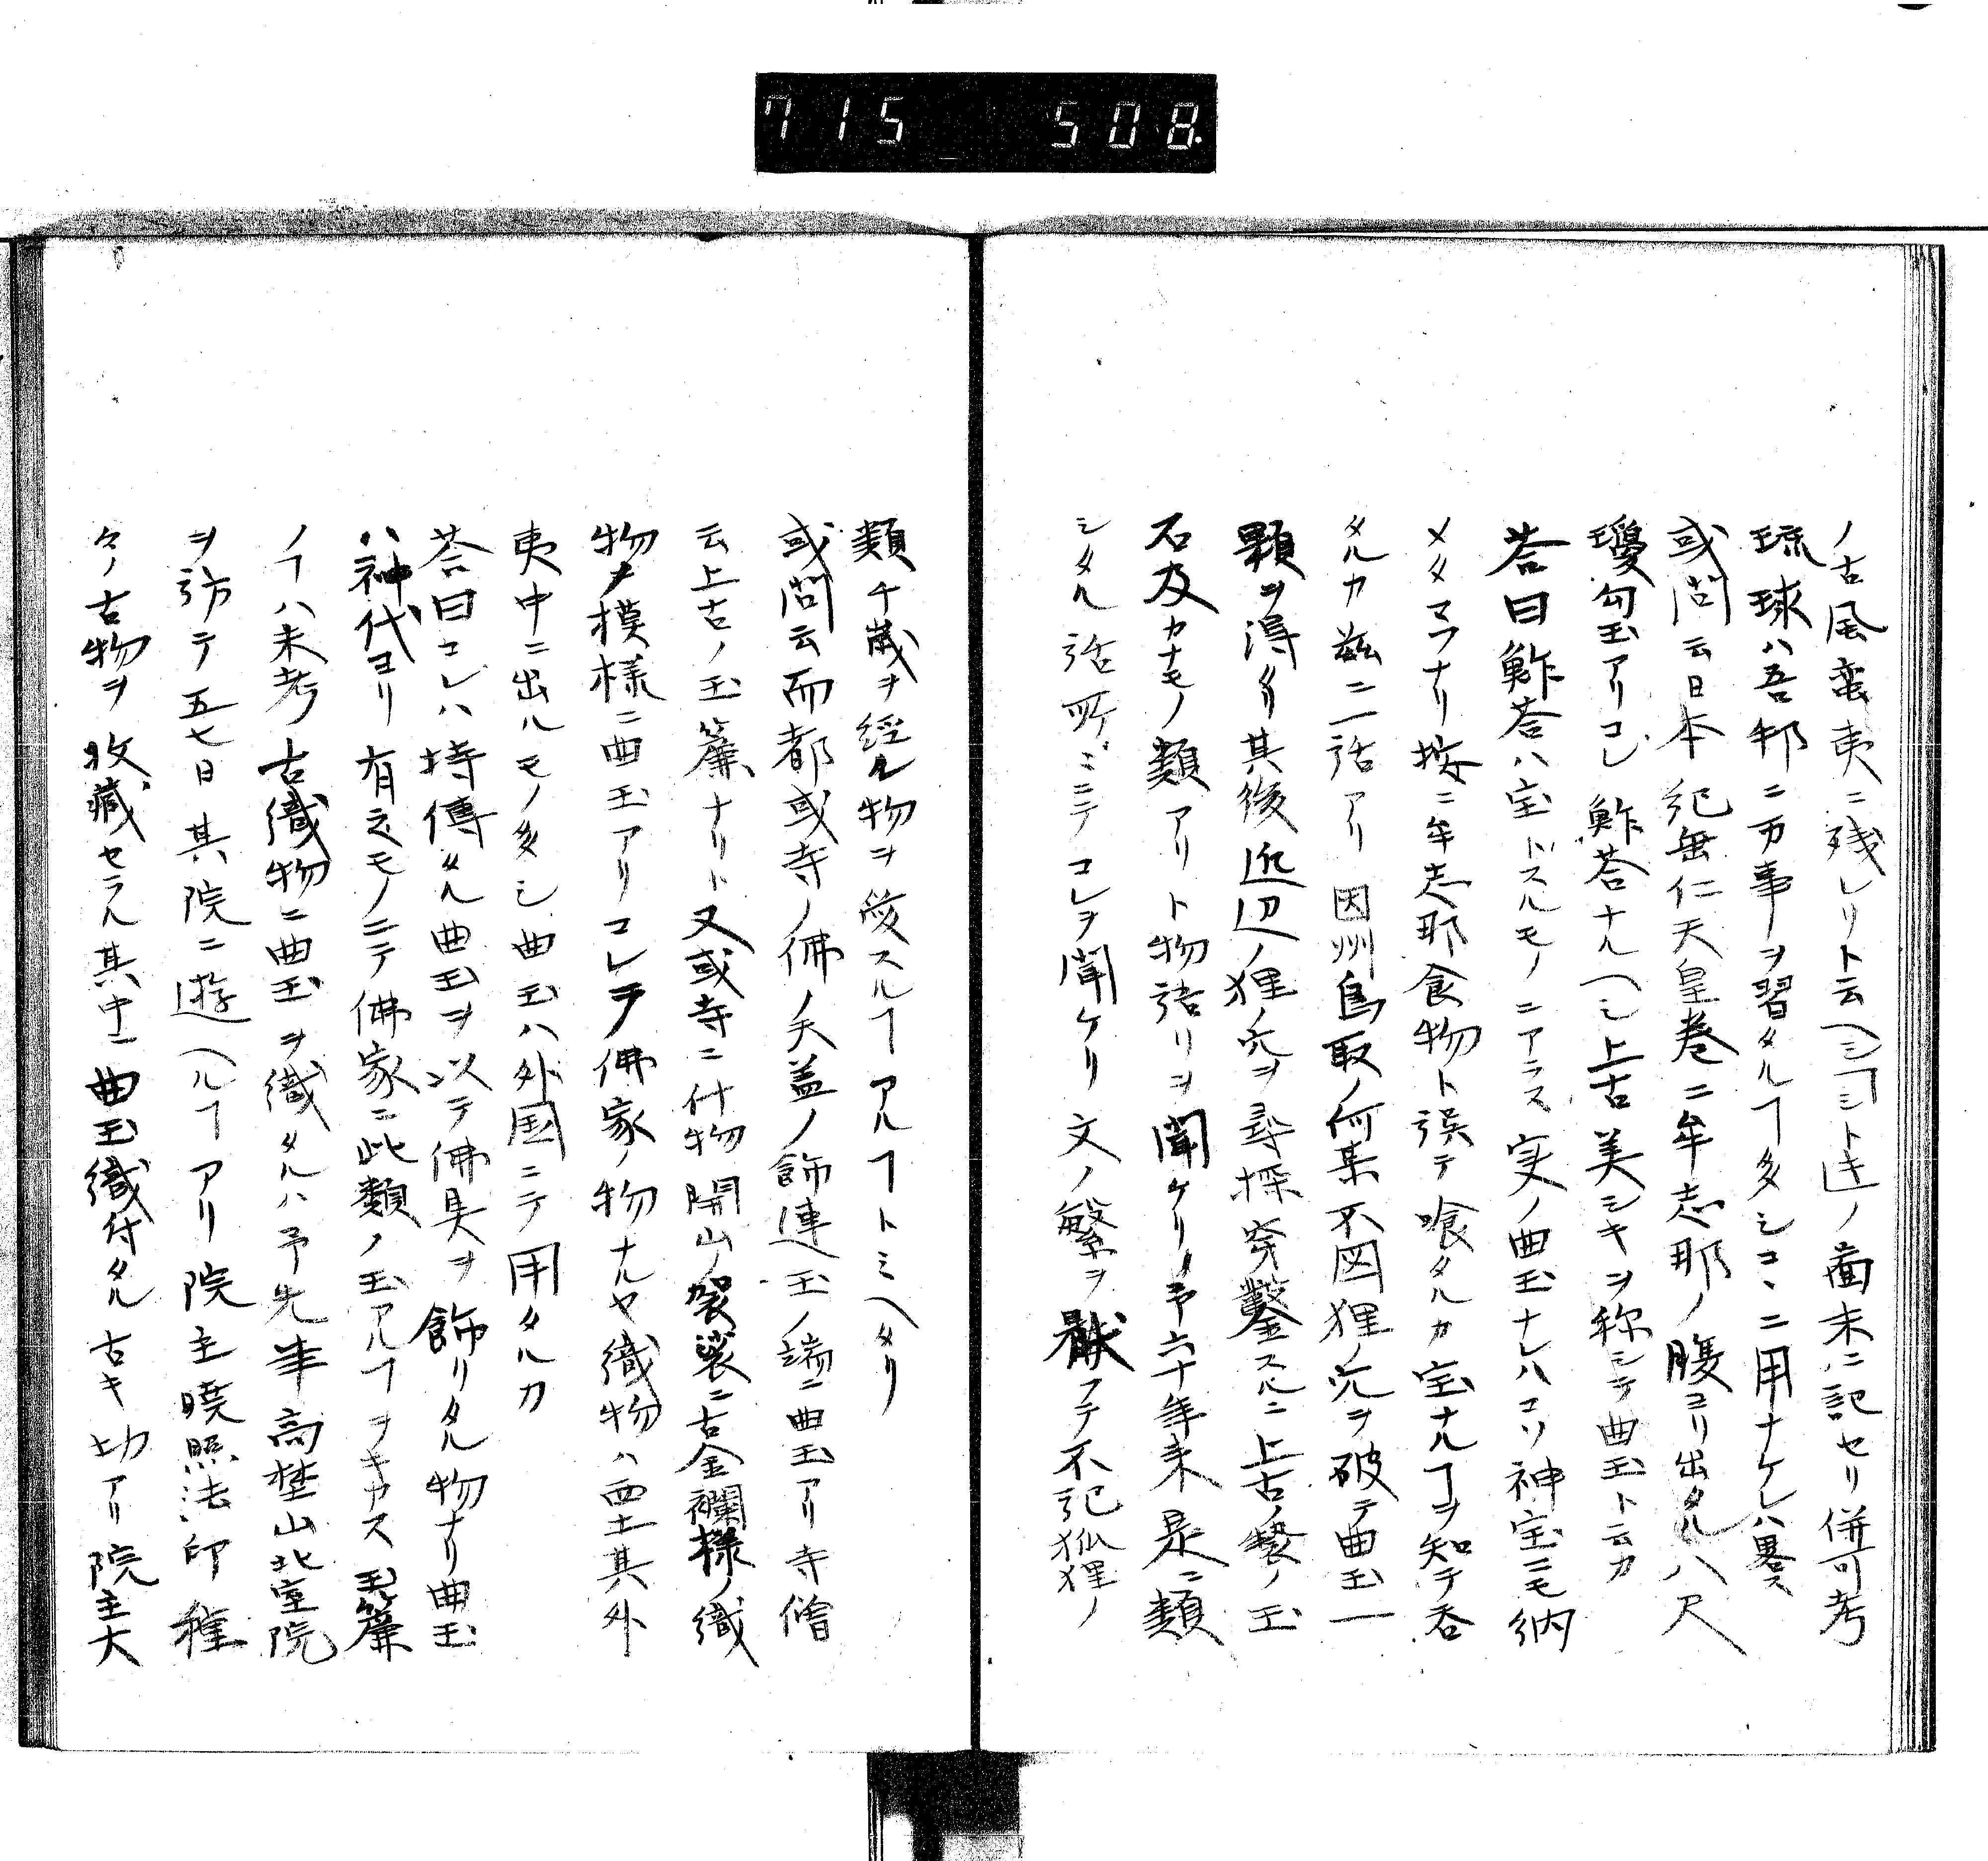 715 508.
ノ古風蛮夷ニ残レリト云ヘシヿシト迠ノ圖末ニ記セリ併可考
琉球ハ吾邦ニ万事ヲ習タルヿ多シコヽニ用ナケレハ畧ス
或問云日本紀垂仁天皇巻ニ牟志那ノ腹ヨリ出タル八尺
瓊勾玉アリコレ鮓荅ナルヘシ上古美シキヲ称シテ曲玉ト云カ
荅曰鮓荅ハ宝トスルモノニアラス実ノ曲玉ナレハコソ神宝ニモ納
メタマフナリ按ニ牟志那食物ト誤テ喰タルカ宝ナルヿヲ知テ呑
タルカ茲ニ一話アリ因州鳥取ノ何某不図狸ノ穴ヲ破テ曲玉一
顆ヲ得タリ其後近辺ノ狸ノ穴ヲ尋探穿鑿スルニ上古ノ製ノ玉
石及カナモノ類アリト物語リヲ聞ケリ予六十年来是ニ類
シタル話所〻ニテコレヲ聞ケリ文ノ繁ヲ厭フテ不記狐狸ノ
類千歳ヲ經ル物ヲ愛スルヿアルヿトミヘタリ
或問云而都或寺ノ佛ノ天盖ノ飾連玉ノ端ニ曲玉アリ寺僧
云上古ノ玉簾ナリト又或寺ニ什物開山ノ袈裟ニ古金襴様ノ織
物ノ模様ニ曲玉アリコレヲ佛家ノ物ナルヤ織物ハ西土其外
夷中ニ出ルモノ多シ曲玉ハ外国ニテ用タルカ
荅曰コレハ持傳タル曲玉ヲ以テ佛具ヲ飾リタル物ナリ曲玉
ハ神代ヨリ有之モノニテ佛家ニ此類ノ玉アルヿヲキカス玉簾
ノヿハ未考古織物ニ曲玉ヲ織タルハ予先年高埜山北室院
ヲ訪テ五七日其院ニ遊ヘルヿアリ院主暁照法印種
々ノ古物ヲ收藏セラル其中ニ曲玉織付タル古キ切アリ院主大